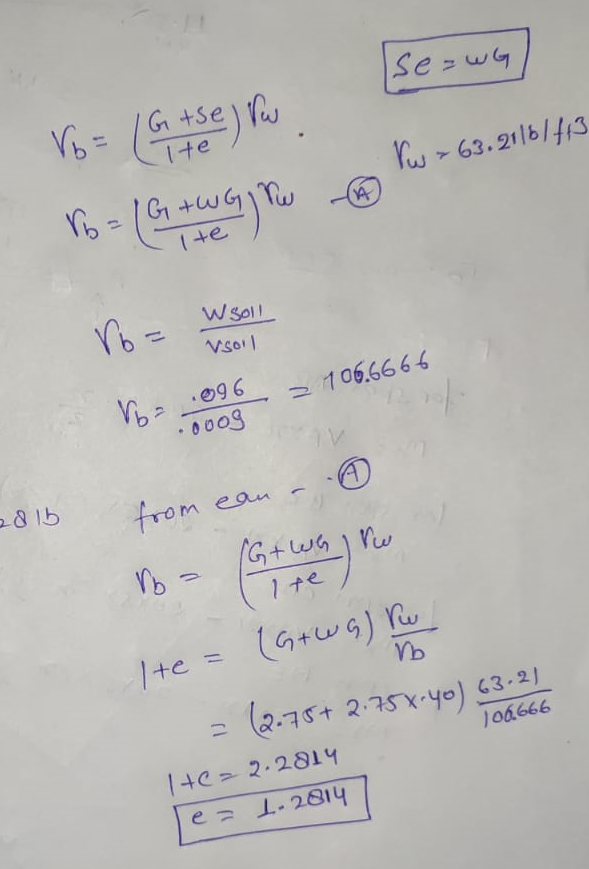 Se = wG
γb = (G+Se / 1+e) γw .
γw = 63.21 lb/ft3
γb = (G+wG / 1+e) γw - (A)
γb = Wsoil / Vsoil
γb = .096 / .0009 = 106.6666
281b
from eqn - (A)
γb = (G+wG / 1+e) γw
1+e = (G+wG) γw / γb
= (2.75+ 2.75x.40) 63.21 / 106.666
1+e = 2.2814
e = 1.2814